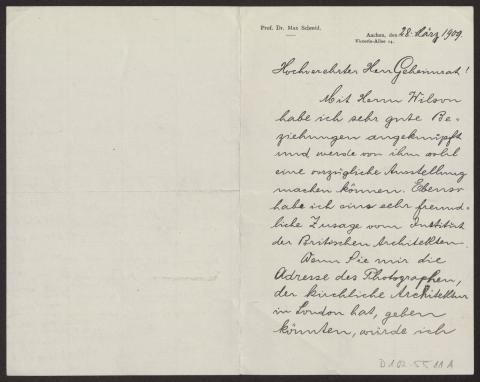 Prof. Dr. Max Schmid.
Aachen, den 28. März 1909.
Victoria-Allee 14.
Hochverehrter Herr Geheimrat!
Mit Herrn Wilson
habe ich sehr gute Be-
ziehungen angeknüpft
und werde von ihm wohl
eine vorzügliche Ausstellung
machen können. Ebenso
habe ich eine sehr freund-
liche Zusage vom Institut
der Britischen Architekten.
Wenn Sie mir die
Adresse des Photographen,
der kirchliche Architektur
in London hat, geben
könnten, würde ich
D 102-5511A